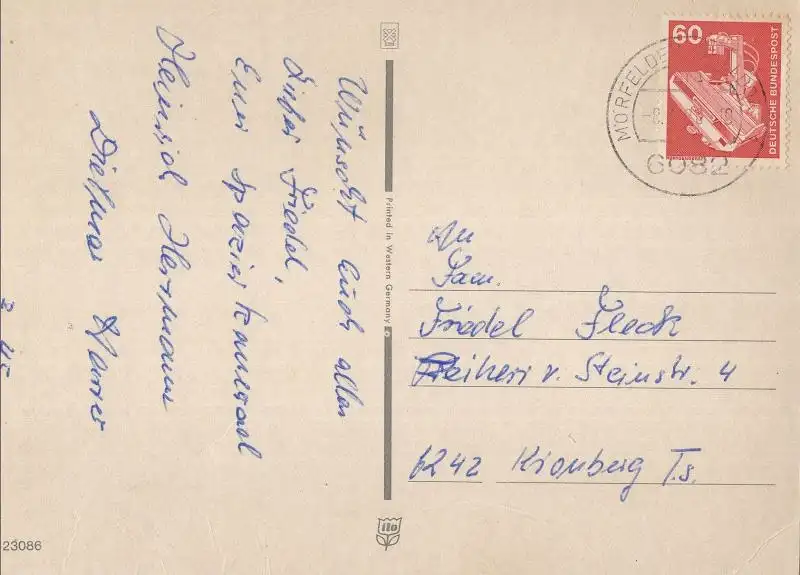 Wünscht Euch allen
Lieber Friedel,
Euer Spazierkamerad
Heinrich Hermann
Dietmar
60
DEUTSCHE BUNDESPOST
MÖRFELDE
6082
Printed in Western Germany
An
Fam.
Friedel Fleck
Freiherr v. Steinstr. 4
6242 Kronberg Ts.
ito
23086